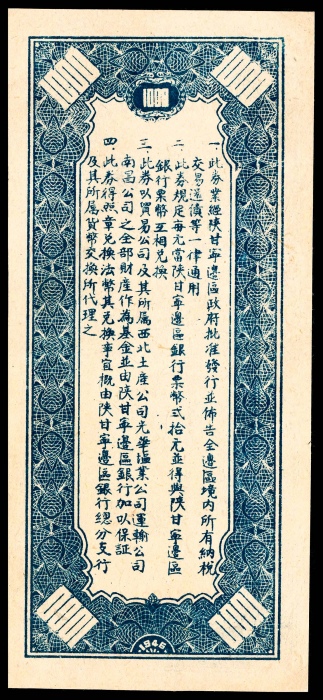 一 此券業經陝甘寧邊區政府批准發行並佈告全邊區境內所有納稅
交易還債等一律通用
二 此券規定每元當陝甘寧邊區銀行票幣弍拾元並得與陝甘寧邊區
銀行票幣互相兌換
三 此券以貿易公司及其所属西北土產公司光華鹽業公司運輸公司
南昌公司之全部財產作為基金並由陝甘寧邊區銀行加以保証
四 此券得照章兌換法幣其兌換事宜概由陝甘寧邊區銀行總分支行
及其所属貨幣交換所代理之
1946